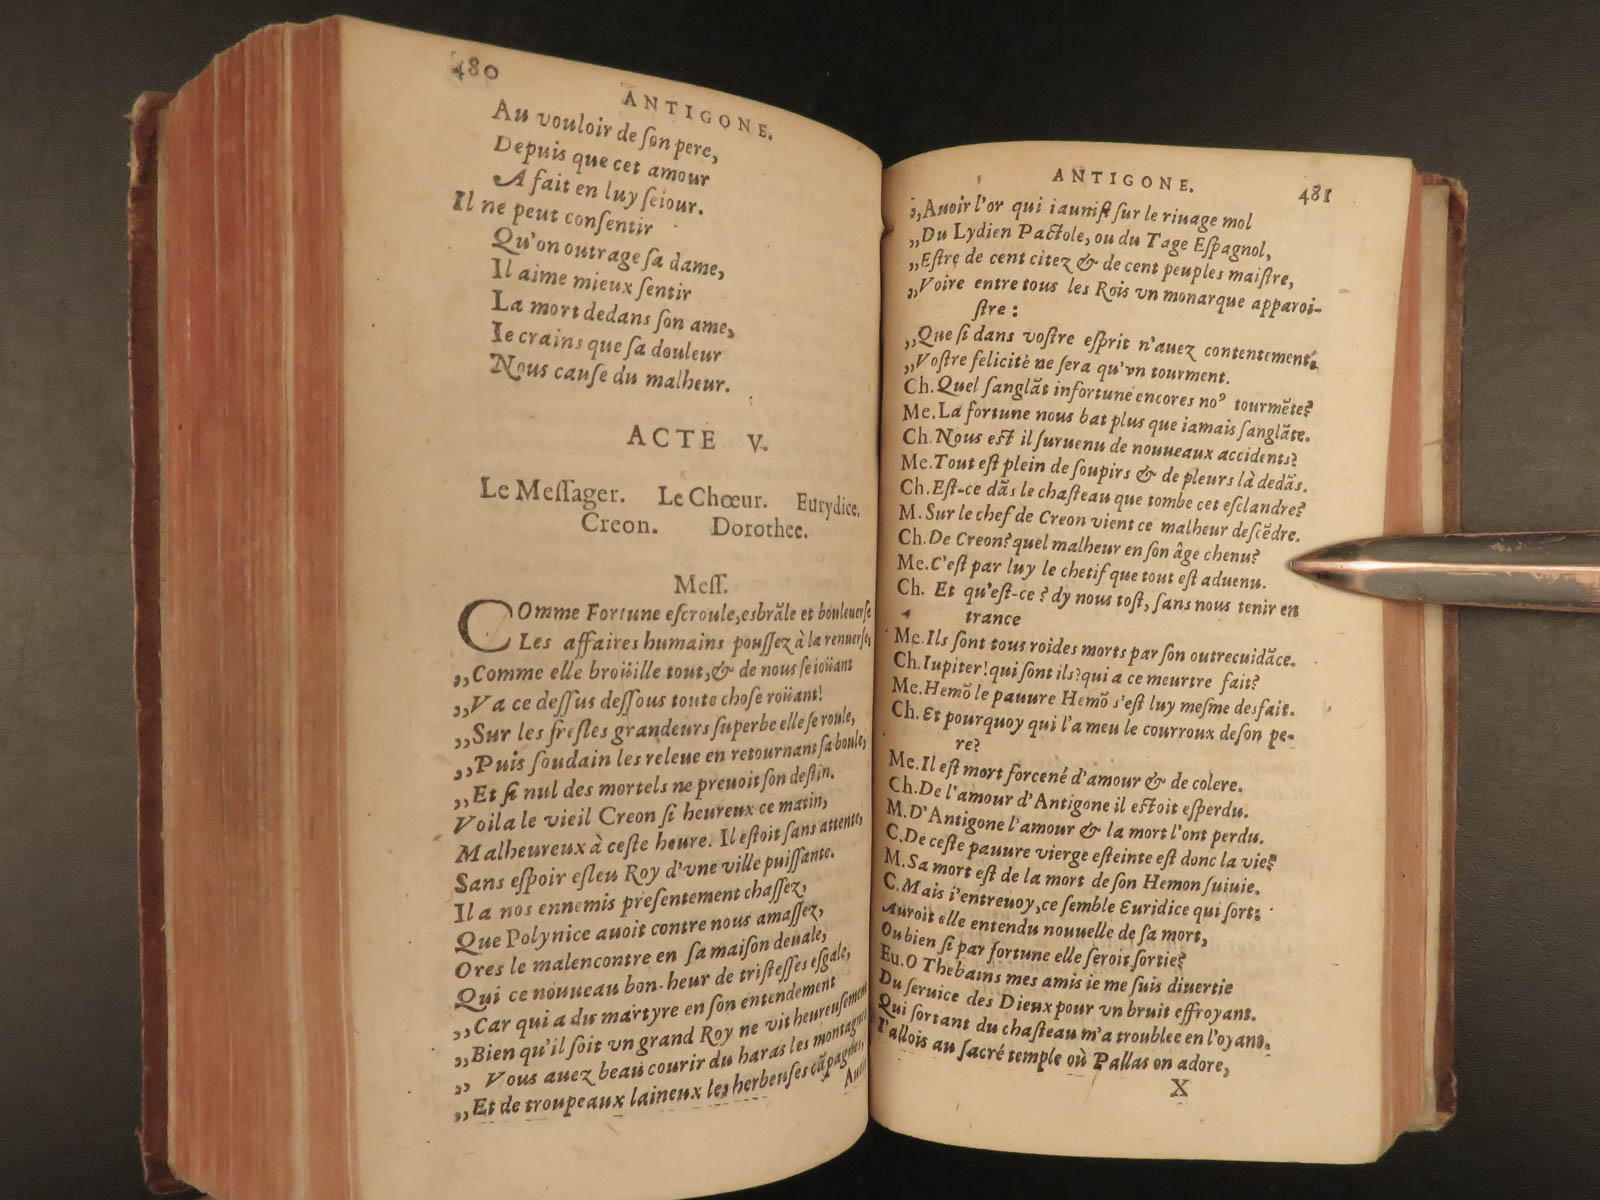 480
ANTIGONE.
Au vouloir de ſon pere,
Depuis que cet amour
A fait en luy ſeiour.
Il ne peut conſentir
Qu'on outrage ſa dame,
Il aime mieux ſentir
La mort dedans ſon ame,
Ie crains que ſa douleur
Nous cauſe du malheur.
ACTE V.
Le Meſſager. Le Chœur. Eurydice.
Creon. Dorothee.
Meſſ.
COmme Fortune eſcroule, esbrãle et bouleuerſe
Les affaires humains pouſſez à la renuerſe,
,,Comme elle broüille tout, & de nous ſe ioüant
,,Va ce deſſus deſſous toute choſe roüant!
,,Sur les freſles grandeurs ſuperbe elle ſe roule,
,,Puis ſoudain les releue en retournant ſa boule,
,,Et ſi nul des mortels ne preuoit ſon deſtin.
Voila le vieil Creon ſi heureux ce matin,
Malheureux à ceſte heure. Il eſtoit ſans attente,
Sans eſpoir eſleu Roy d'vne ville puiſſante.
Il a nos ennemis preſentement chaſſez,
Que Polynice auoit contre nous amaſſez,
Ores le malencontre en ſa maiſon deuale,
Qui ce nouueau bon-heur de triſteſſes eſgale,
,,Car qui a du martyre en ſon entendement
,,Bien qu'il ſoit vn grand Roy ne vit heureuſement
,, Vous auez beau courir du haras les montagnes
,,Et de troupeaux laineux les herbeuſes cãpagnes,
ANTIGONE.
481
,,Auoir l'or qui iauniſt ſur le riuage mol
,,Du Lydien Pactole, ou du Tage Eſpagnol,
,,Eſtre de cent citez & de cent peuples maiſtre,
,,Voire entre tous les Rois vn monarque apparoi-
ſtre:
,,Que ſi dans voſtre eſprit n'auez contentement,
,,Voſtre felicité ne ſera qu'vn tourment.
Ch. Quel ſanglãt infortuné encores noꝰ tourmẽte?
Me. La fortune nous bat plus que iamais ſanglãte.
Ch. Nous eſt il ſuruenu de nouueaux accidents?
Me. Tout eſt plein de ſoupirs & de pleurs là dedãs.
Ch. Eſt-ce dãs le chaſteau que tombe cet eſclandre?
M. Sur le chef de Creon vient ce malheur deſcẽdre.
Ch. De Creon? quel malheur en ſon âge chenu?
Me. C'eſt par luy le chetif que tout eſt aduenu.
Ch. Et qu'eſt-ce? dy nous toſt, ſans nous tenir en
trance
Me. Ils ſont tous roides morts par ſon outrecuidãce.
Ch. Iupiter! qui ſont ils? qui a ce meurtre fait?
Me. Hemõ le pauure Hemõ s'eſt luy meſme desfait.
Ch. Et pourquoy qui l'a meu le courroux de ſon pe-
re?
Me. Il eſt mort forcené d'amour & de colere.
Ch. De l'amour d'Antigone il eſtoit eſperdu.
M. D'Antigone l'amour & la mort l'ont perdu.
C. De ceſte pauure vierge eſteinte eſt donc la vie?
M. Sa mort eſt de la mort de ſon Hemon ſuiuie.
C. Mais i'entreuoy, ce ſemble Euridice qui ſort:
Auroit elle entendu nouuelle de ſa mort,
Ou bien ſi par fortune elle ſeroit ſortie?
Eu. O Thebains mes amis ie me ſuis diuertie
Du ſeruice des Dieux pour vn bruit effroyant.
Qui ſortant du chaſteau m'a troublee en l'oyant.
I'allois au ſacré temple où Pallas on adore,
X